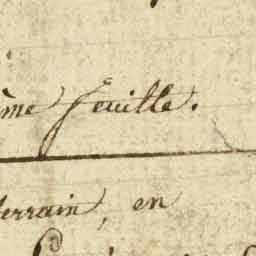 ème feuille.
terrain, en